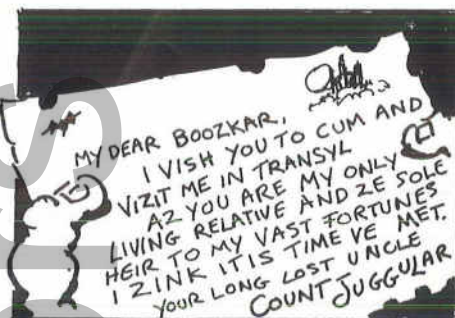 MY DEAR BOOZKAR,
I VISH YOU TO CUM AND
VIZIT ME IN TRANSYL
AZ YOU ARE MY ONLY
LIVING RELATIVE AND ZE SOLE
HEIR TO MY VAST FORTUNES
I ZINK IT IS TIME VE MET.
YOUR LONG LOST UNCLE
COUNT JUGGULAR